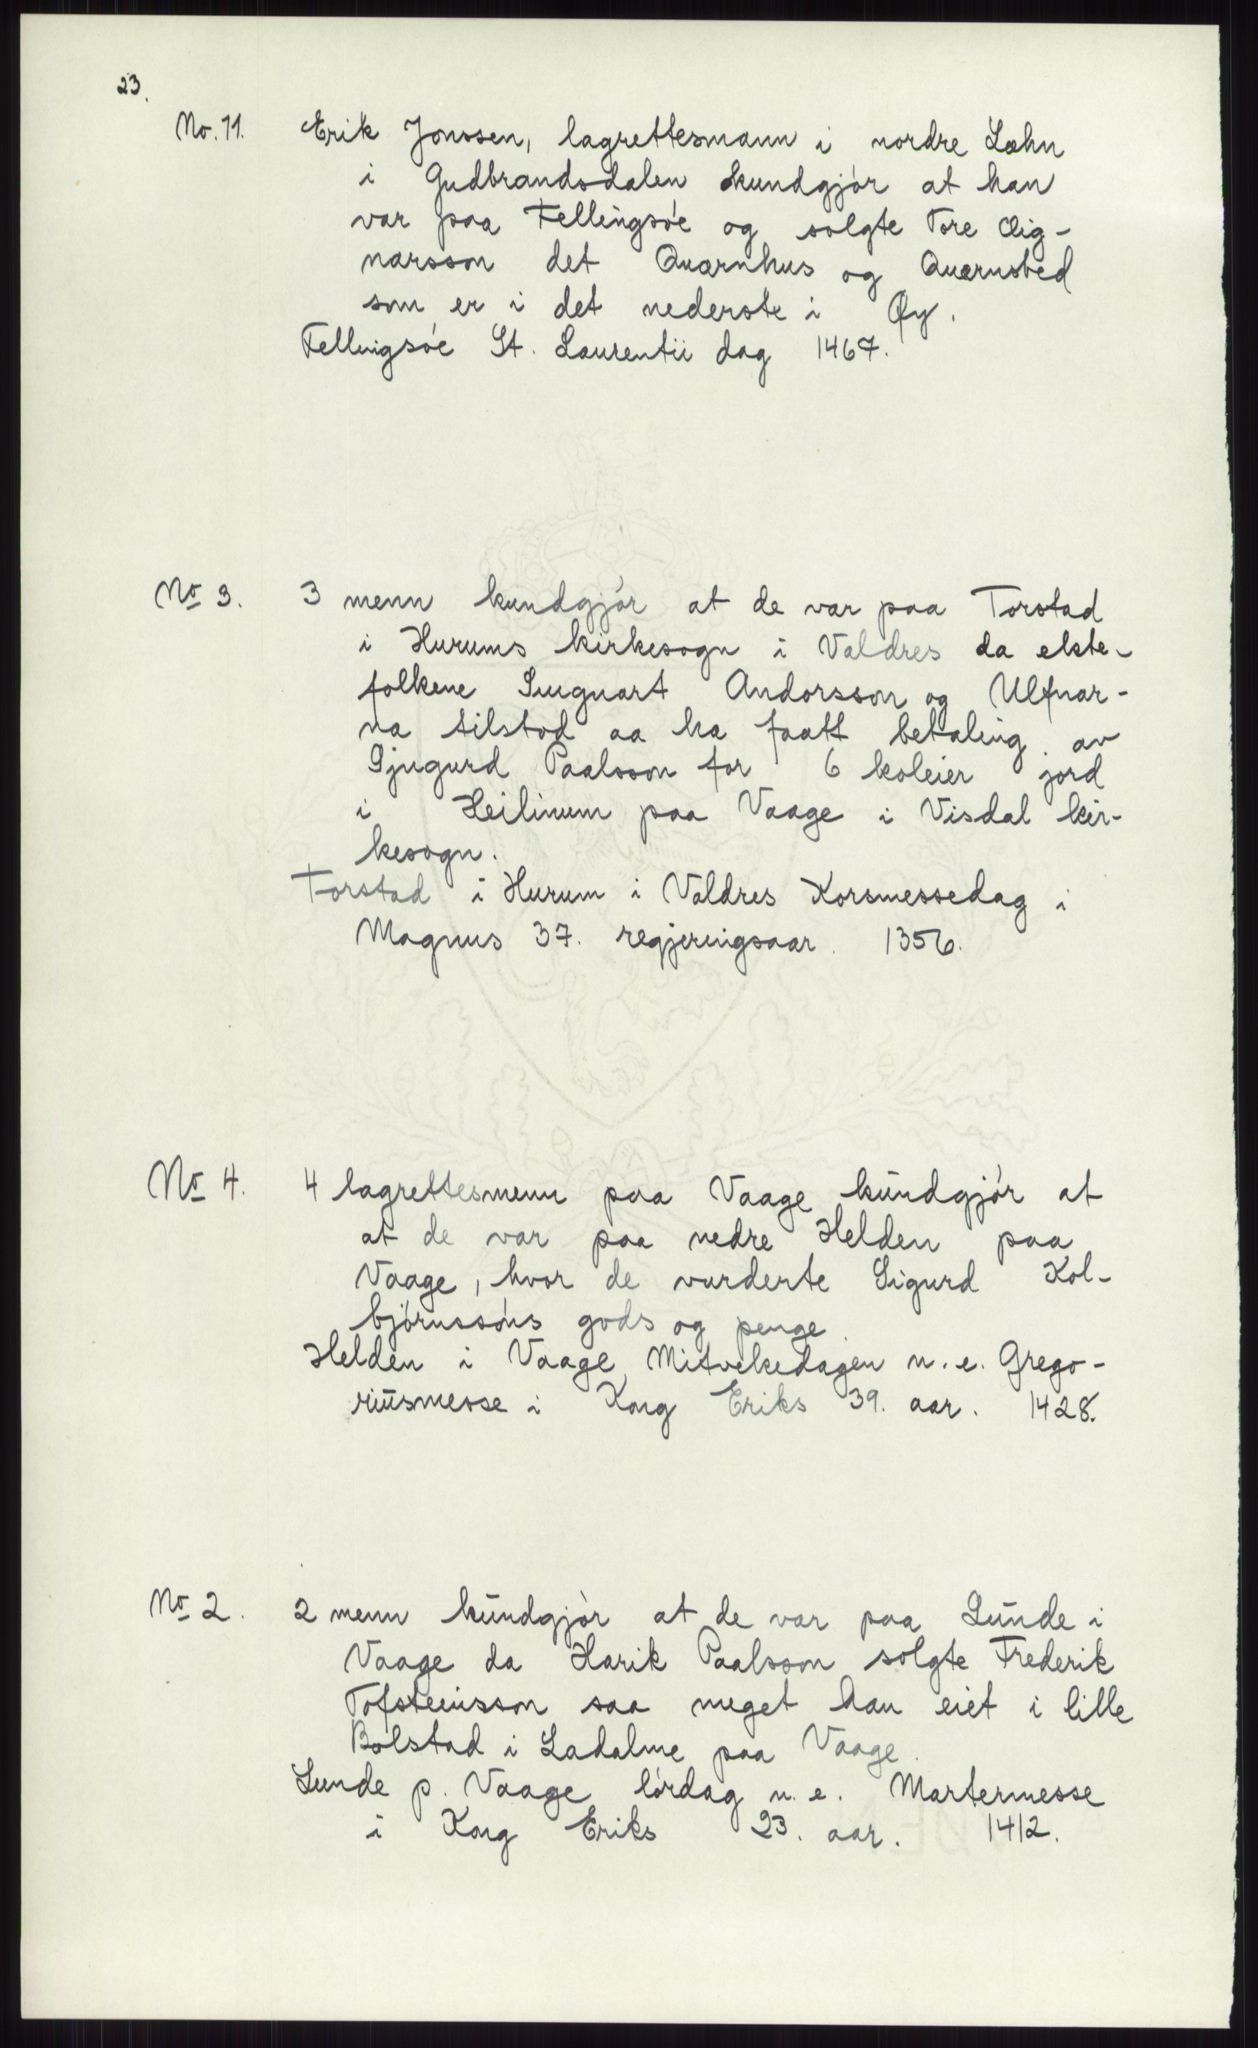 23.
No. 11. Erik Jonssen, lagrettesmann i nordre Læhn
i Gudbrandsdalen kundgjør at han
var paa Fellingsøe og solgte Tore Oig-
narsson det Quærnhus og Quærnsted
som er i det nederste i Øy.
Fellingsøe St. Laurentii dag 1467.
No 3. 3 menn kundgjør at de var paa Torstad
i Hurums kirkesogn i Valdres da ekte-
folkene Andorsson og Ulfnar-
na tilstod aa ha faatt betaling av
Gjugurd Paalsson for 6 koleier jord
i Heilinum paa Vaage i Visdal kir-
kesogn.
Torstad i Hurum i Valdres Korsmessedag i
Magnus 37. regjeringsaar. 1356.
No 4. 4 lagrettesmenn paa Vaage kundgjør at
at de var paa nedre Helden paa
Vaage, hvor de vurderte Sigurd Kol-
bjørnssøns gods og penge.
Helden i Vaage Mitvekedagen n. e. Grego-
riusmesse i Kong Eriks 39. aar. 1428.
No 2. 2 menn kundgjør at de var paa Lunde i
Vaage da Harik Paalsson solgte Frederik
Tofsteinsson saa meget han eiet i lille
Bolstad i Ladalme paa Vaage.
Lunde p. Vaage lørdag n. e. Martermesse
i Kong Eriks 23. aar. 1412.